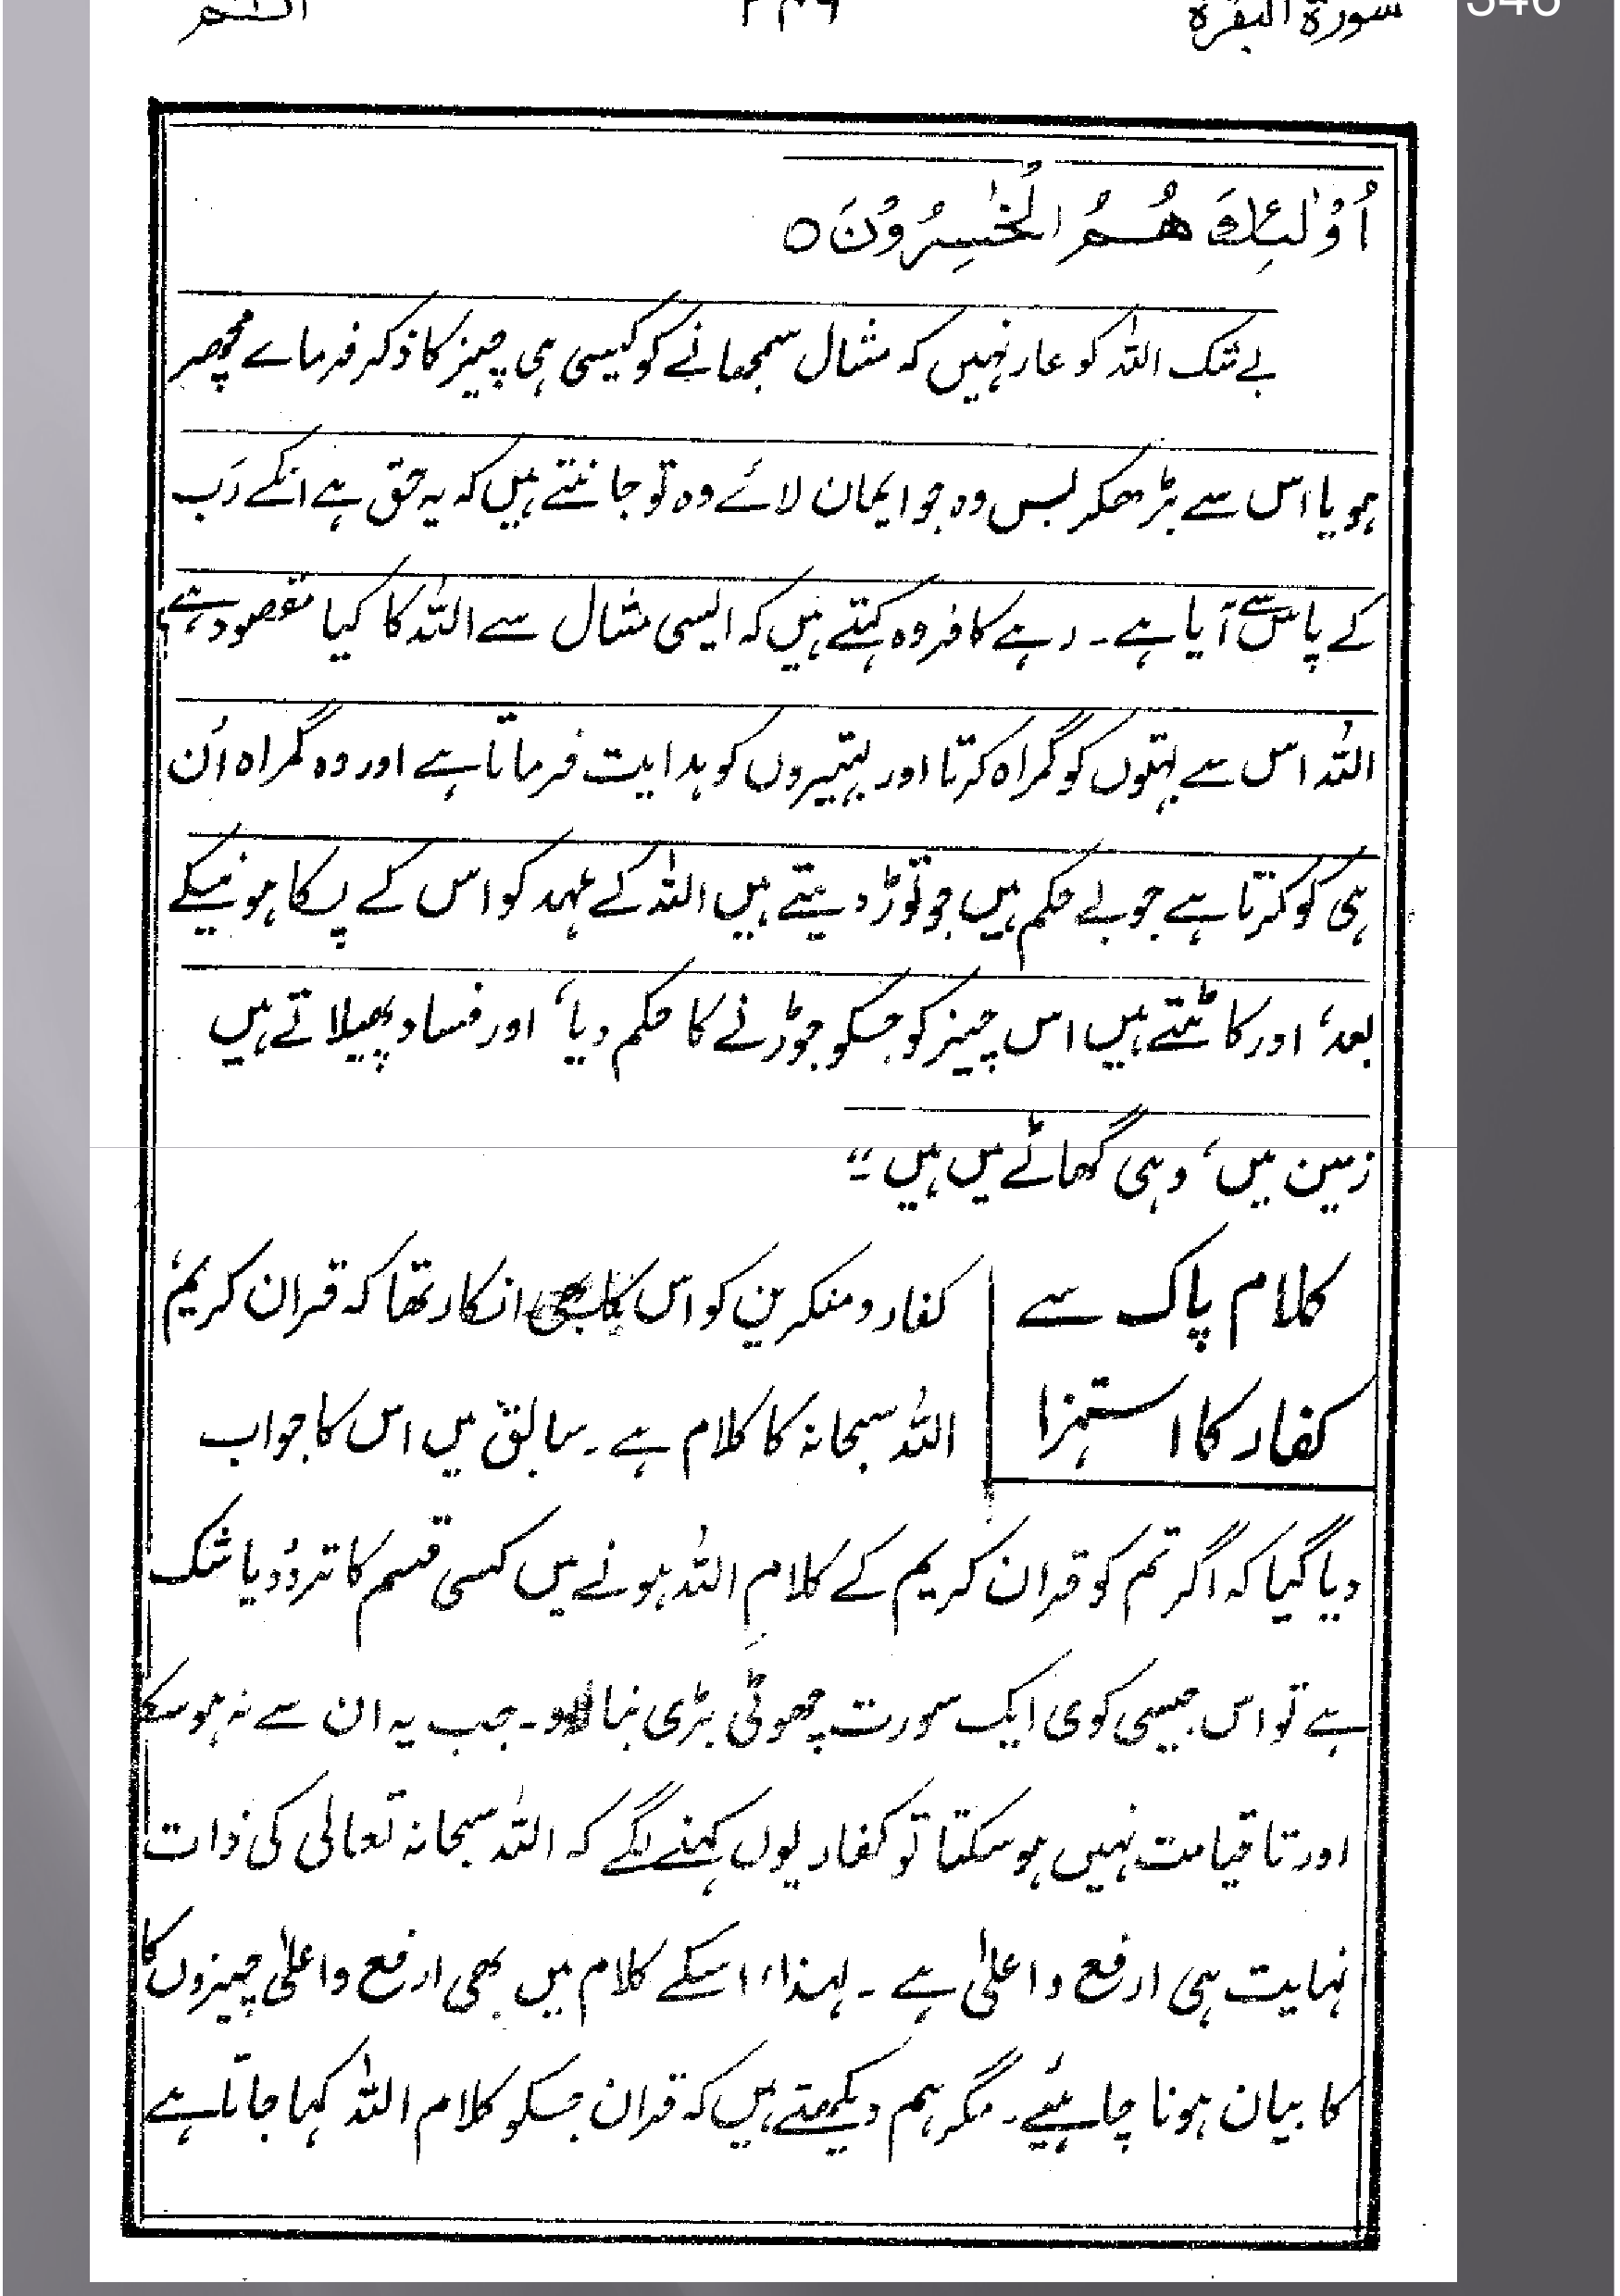 سورۃ البقرۃ
346
اُوْلٰئِكَ هُمُ الْخٰسِرُوْنَ ○
بے شک اللہ کو عار نہیں کہ مثال سمجھانے کو کیسی ہی چیز کا ذکر فرماے مچھر
ہو یا اس سے بڑھکر بس وہ جو ایمان لائے وہ تو جانتے ہیں کہ یہ حق ہے انکے رَب
کے پاس سے آیا ہے ۔ رہے کافر وہ کہتے ہیں کہ ایسی مثال سے اللہ کا کیا مقصود ہے
اللہ اس سے بہتوں کو گمراہ کرتا اور بہتیروں کو ہدایت فرماتا ہے اور وہ گمراہ اُن
ہی کو کرتا ہے جو بے حکم ہیں جو توڑ دیتے ہیں اللہ کے عہد کو اس کے پکا ہونیکے
بعد، اور کاٹتے ہیں اس چیز کو جسکو جوڑنے کا حکم دیا، اور فساد پھیلاتے ہیں
زمین میں، وہی گھاٹے میں ہیں ۔"
کلام پاک سے
کفار کا استہزا
کفار و منکرین کو اس کا بھی انکار تھا کہ قران کریم،
اللہ سبحانہ کا کلام ہے ۔ سابق میں اس کا جواب
دیا گیا کہ اگر تم کو قران کریم کے کلامِ اللہ ہونے میں کسی قسم کا تردُد یا شک
ہے تو اس جیسی کوی ایک سورت چھوٹی بڑی بنا لاو ۔ جب یہ ان سے نہ ہو سکا
اور تا قیامت نہیں ہو سکتا تو کفار یوں کہنے لگے کہ اللہ سبحانہ تعالی کی ذات
نہایت ہی ارفع و اعلیٰ ہے ۔ لہذا، اسکے کلام میں بھی ارفع و اعلیٰ چیزوں کا
کا بیان ہونا چاہئیے ۔ مگر ہم دیکھتے ہیں کہ قران جسکو کلام اللہ کہا جاتا ہے